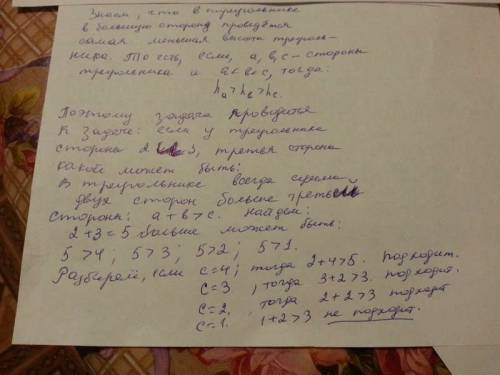 Знаем, что в треугольнике
в большую сторону проведётся
самая меньшая высота треуголь-
ника. То есть, если, a, b, c - стороны
треугольника и a<b<c, тогда:
ha>hb>hc.
Поэтому задача проводится
к задаче: если у треугольника
сторона 2 и 3, третья сторона
какой может быть:
В треугольнике всегда сумма
двух сторон больше третьей
стороны: a+b>c. Найдем:
2+3=5 больше может быть:
5>4; 5>3; 5>2; 5>1.
Разбираем, если c=4; тогда 2+4>5. подходит.
c=3, тогда 3+2>3. подходит.
c=2, тогда 2+2>3 подходит
c=1. 1+2>3 не подходит.